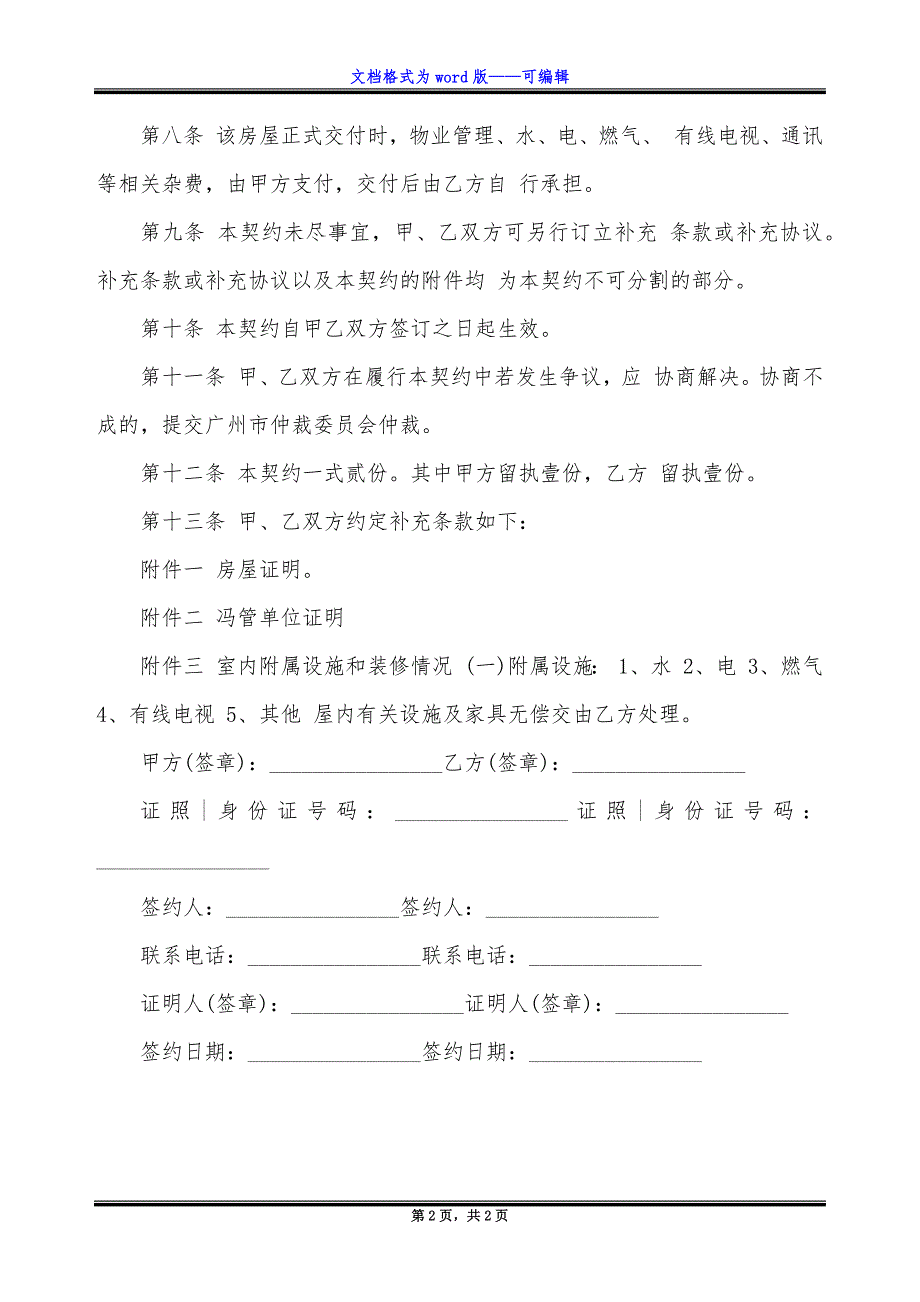 文档格式为 word 版——可编辑
第八条 该房屋正式交付时，物业管理、水、电、燃气、 有线电视、通讯
等相关杂费，由甲方支付，交付后由乙方自 行承担。
第九条 本契约未尽事宜，甲、乙双方可另行订立补充 条款或补充协议。
补充条款或补充协议以及本契约的附件均 为本契约不可分割的部分。
第十条 本契约自甲乙双方签订之日起生效。
第十一条 甲、乙双方在履行本契约中若发生争议，应 协商解决。协商不
成的，提交广州市仲裁委员会仲裁。
第十二条 本契约一式贰份。其中甲方留执壹份，乙方 留执壹份。
第十三条 甲、乙双方约定补充条款如下：
附件一 房屋证明。
附件二 冯管单位证明
附件三 室内附属设施和装修情况 (一)附属设施： 1、水 2、电 3、燃气
4、有线电视 5、其他 屋内有关设施及家具无偿交由乙方处理。
甲方(签章)：________________乙方(签章)：________________
证照|身份证号码：________________证照|身份证号码：
________________
签约人：________________签约人：________________
联系电话：________________联系电话：________________
证明人(签章)：________________证明人(签章)：________________
签约日期：________________签约日期：________________
第 2 页，共 2 页